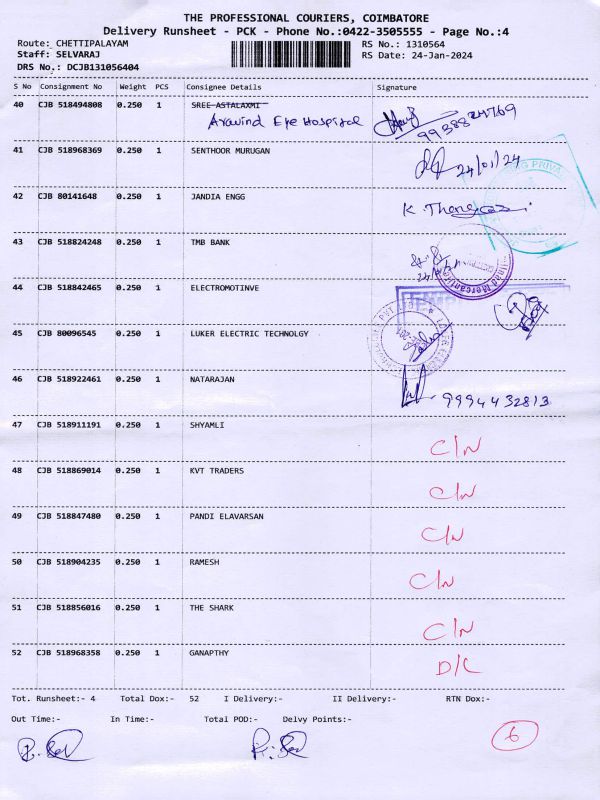 THE PROFESSIONAL COURIERS, COIMBATORE
Delivery Runsheet - PCK - Phone No.:0422-3505555 - Page No.:4
Route: CHETTIPALAYAM RS No.: 1310564
Staff: SELVARAJ RS Date: 24-Jan-2024
DRS No.: DCJB131056404
S No Consignment No Weight PCS Consignee Details Signature
40 CJB 518494808 0.250 1 SREE ASTALAXMI
Aravind Eye Hospital
41 CJB 518968369 0.250 1 SENTHOOR MURUGAN 24/01/24
42 CJB 80141648 0.250 1 JANDIA ENGG
43 CJB 518824248 0.250 1 TMB BANK
44 CJB 518842465 0.250 1 ELECTROMOTINVE
45 CJB 80096545 0.250 1 LUKER ELECTRIC TECHNOLGY
46 CJB 518922461 0.250 1 NATARAJAN
9994432813
47 CJB 518911191 0.250 1 SHYAMLI C/N
48 CJB 518869014 0.250 1 KVT TRADERS C/N
49 CJB 518847480 0.250 1 PANDI ELAVARSAN C/N
50 CJB 518904235 0.250 1 RAMESH C/N
51 CJB 518856016 0.250 1 THE SHARK C/N
52 CJB 518968358 0.250 1 GANAPTHY D/L
Tot. Runsheet:- 4 Total Dox:- 52 I Delivery:- II Delivery:- RTN Dox:-
Out Time:- In Time:- Total POD:- Delvy Points:-
6